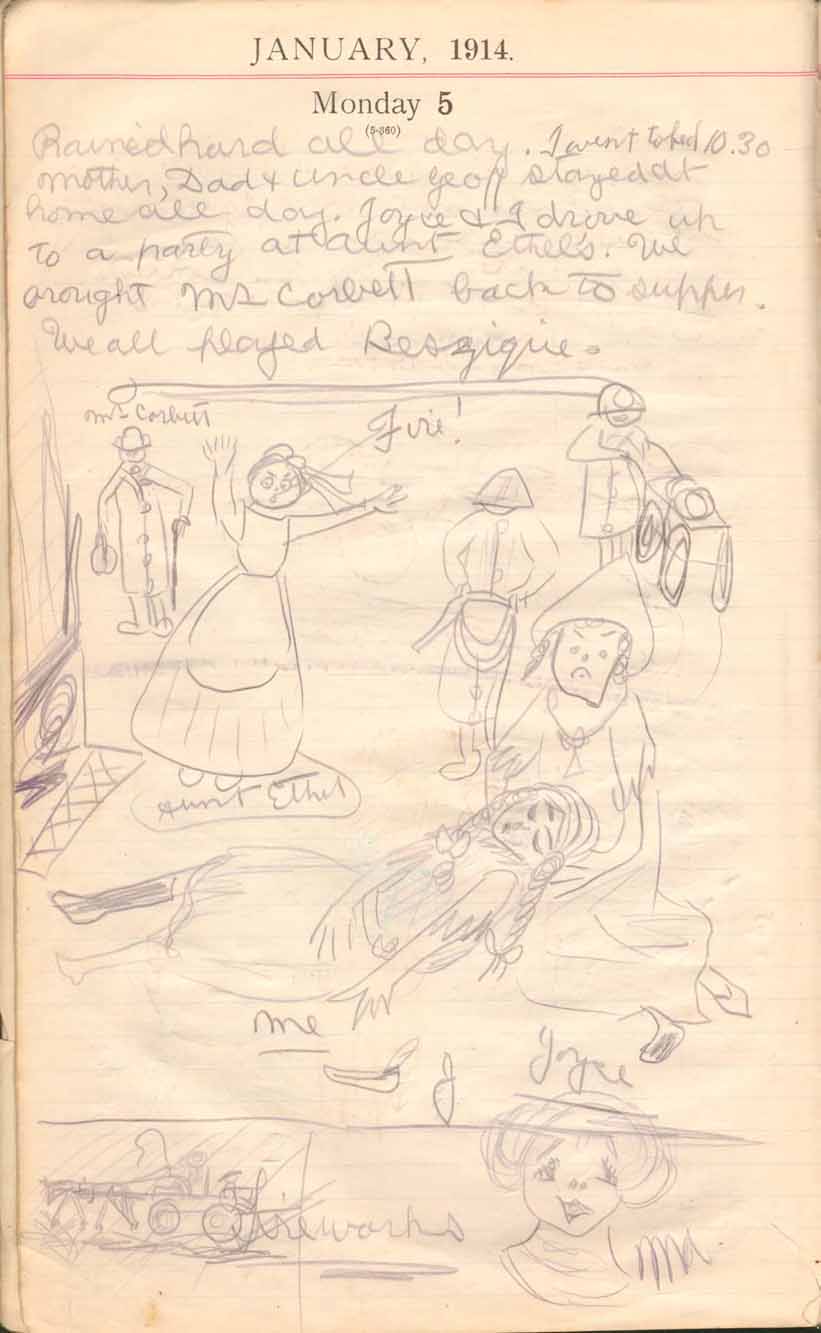 JANUARY, 1914.
Monday 5
(5-360)
Rained hard all day. I went to bed 10.30
mother, Dad & uncle Geoff stayed at
home all day. Joyce & I drove up
to a party at aunt Ethel's. We
brought Mr Corbett back to supper.
We all played Beszique.
Mr Corbett
Fire!
Aunt Ethel
me
Joyce
Fireworks